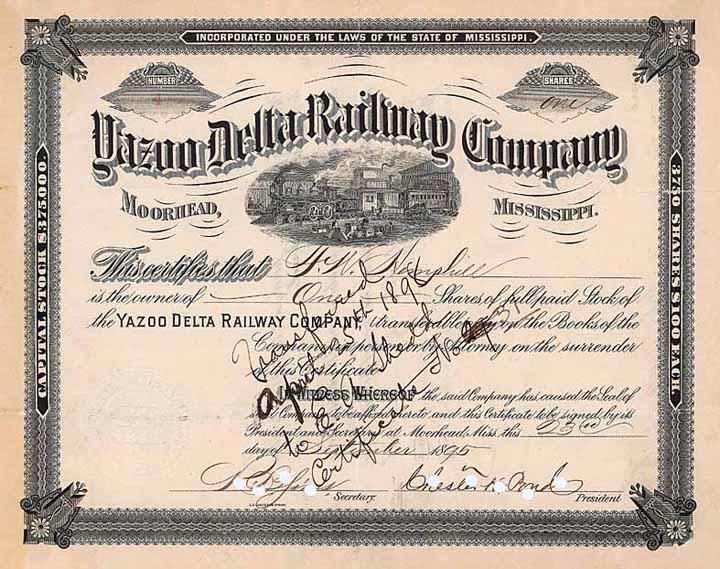 INCORPORATED UNDER THE LAWS OF THE STATE OF MISSISSIPPI.
NUMBER
SHARES
One
Yazoo Delta Railway Company
MOORHEAD,
MISSISSIPPI.
CAPITAL STOCK $375000
3750 SHARES $100 EACH.
This certifies that F. K. Hemphill
is the owner of One Shares of full paid Stock of
the YAZOO DELTA RAILWAY COMPANY, transferable upon the Books of the
Company in person or by Attorney on the surrender
of this Certificate
IN WITNESS WHEREOF the said Company has caused the Seal of
said Company to be affixed hereto and this Certificate to be signed by its
President and Secretary at Moorhead, Miss. this 23rd
day of September 1895
Secretary.
Chester H. Pond
President
Transferred
April 1896
to
Certificate No. 31